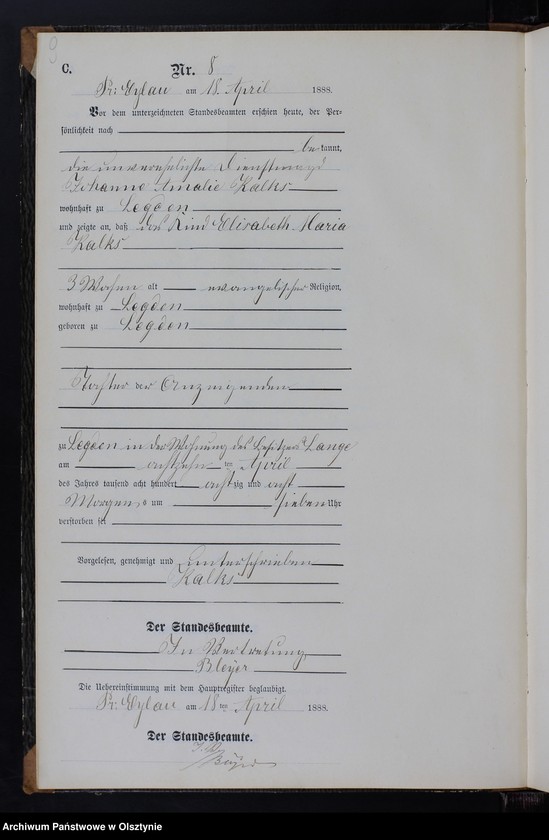 9
C. Nr. 8
Pr: Eylau am 18. April 1888.
Vor dem unterzeichneten Standesbeamten erschien heute, der Per-
sönlichkeit nach
be kannt,
die unverehelichte Dienstmagd
Johanne Amalie Kalks
wohnhaft zu Legden
und zeigte an, daß das Kind Elisabeth Maria
Kalks
3 Wochen alt evangelischer Religion,
wohnhaft zu Legden
geboren zu Legden
Tochter der Anzeigenden
zu Legden in der Wohnung des Besitzers Lange
am achtzehn ten April
des Jahres tausend acht hundert achtzig und acht
Morgens um sieben Uhr
verstorben sei
Vorgelesen, genehmigt und unterschrieben
Kalks
Der Standesbeamte.
In Vertretung
Bleyer
Die Uebereinstimmung mit dem Hauptregister beglaubigt.
Pr: Eylau am 18 ten April 1888.
Der Standesbeamte.
Archiwum Państwowe w Olsztynie